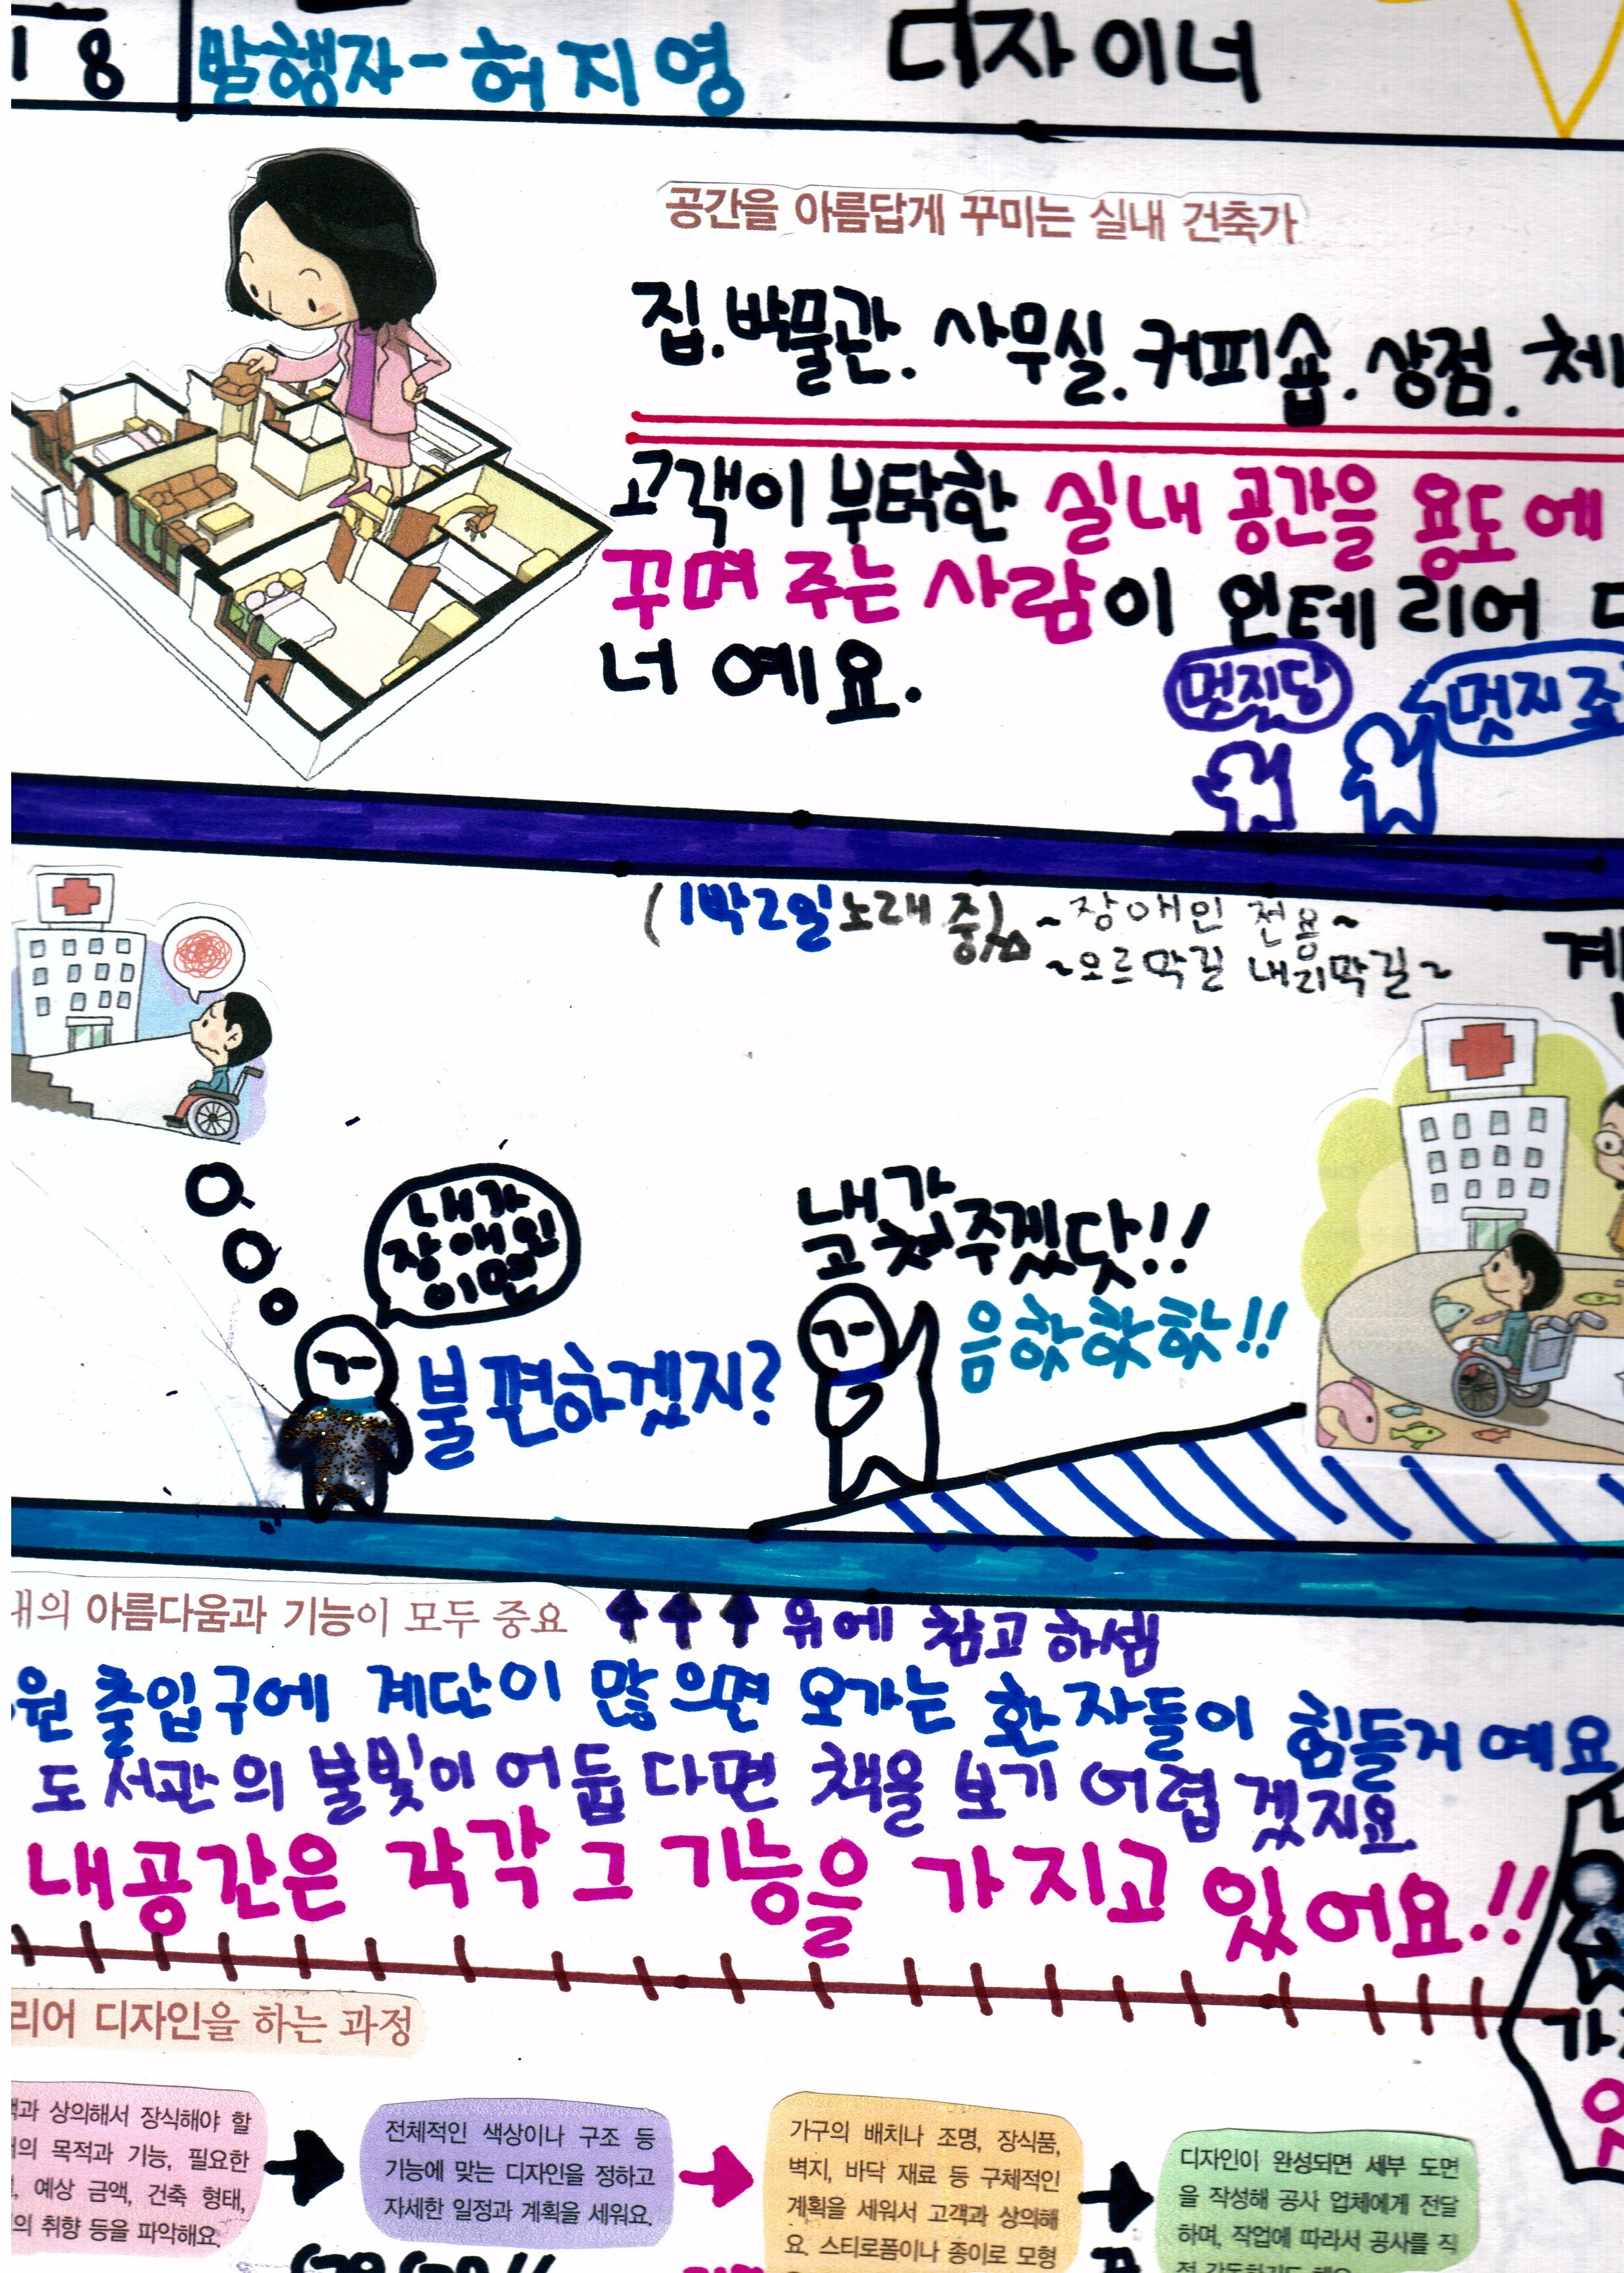 18 발행자-허지영 디자이너
공간을 아름답게 꾸미는 실내 건축가
집.박물관.사무실.커피숍.상점.체
고객이 부탁한 실내 공간을 용도에
꾸며 주는 사람이 인테리어 디
너예요.
멋질당
멋지죠
(1박2일노래중) ~장애인 전용~
~오르막길 내리막길~
계
내가
장애인
이면
불편하겠지?
내가
고쳐주겠닷!!
음핫핫핫!!
내의 아름다움과 기능이 모두 중요
↑↑↑ 위에 참고 하셈
원 출입구에 계단이 많으면 오가는 환자들이 힘들거예요
도서관의 불빛이 어둡다면 책을 보기 어렵겠지요
내공간은 각각 그 기능을 가지고 있어요.!!
리어 디자인을 하는 과정
객과 상의해서 장식해야 할
의 목적과 기능, 필요한
예상 금액, 건축 형태,
의 취향 등을 파악해요.
전체적인 색상이나 구조 등
기능에 맞는 디자인을 정하고
자세한 일정과 계획을 세워요.
가구의 배치나 조명, 장식품,
벽지, 바닥 재료 등 구체적인
계획을 세워서 고객과 상의해
요. 스티로폼이나 종이로 모형
디자인이 완성되면 세부 도면
을 작성해 공사 업체에게 전달
하며, 작업에 따라서 공사를 직
접 감독하기도 해요.
가